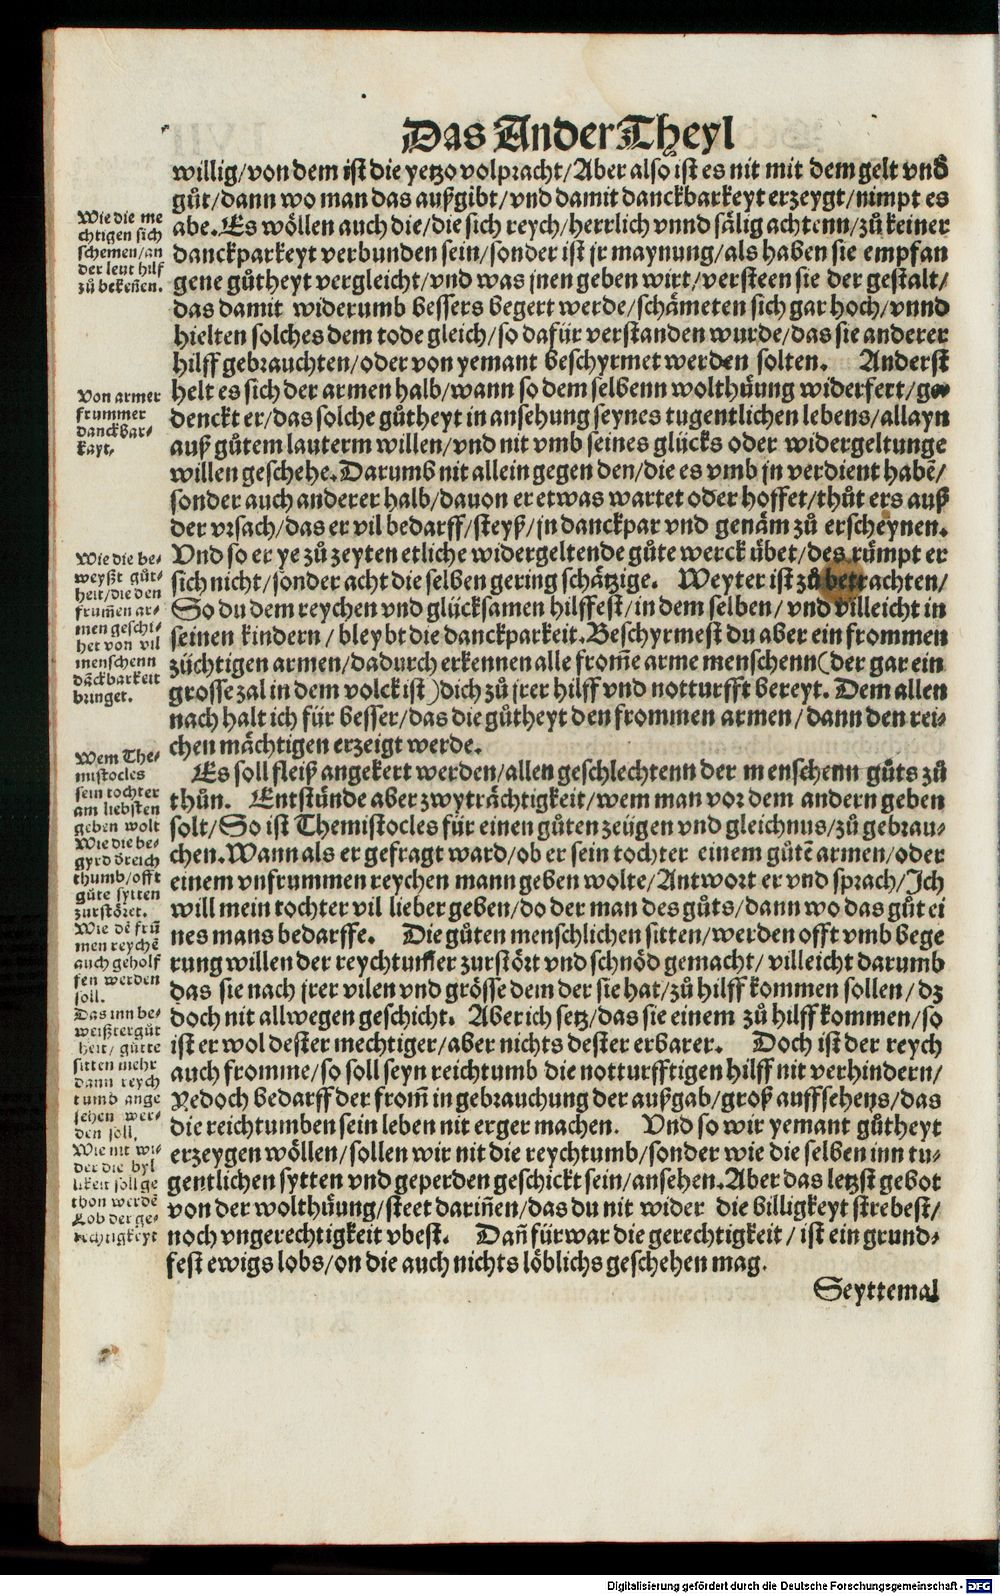 Das Ander Theyl
willig/von dem ist die yetzo volpracht/Aber also ist es nit mit dem gelt vnd
gůt/dann wo man das außgibt/vnd damit danckbarkeyt erzeygt/nimpt es
abe.Es wöllen auch die/die sich reych/herrlich vnnd sälig achtenn/zů keiner
danckparkeyt verbunden sein/sonder ist jr maynung/als haben sie empfan
gene gůtheyt vergleicht/vnd was jnen geben wirt/versteen sie der gestalt/
das damit widerumb bessers begert werde/schämeten sich gar hoch/vnnd
hielten solches dem tode gleich/so dafür verstanden wurde/das sie anderer
hilff gebrauchten/oder von yemant beschyrmet werden solten. Anderst
helt es sich der armen halb/wann so dem selbenn wolthüung widerfert/ge-
denckt er/das solche gůtheyt in ansehung seynes tugentlichen lebens/allayn
auß gůtem lauterm willen/vnd nit vmb seines glücks oder widergeltunge
willen geschehe.Darumb nit allein gegen den/die es vmb jn verdient habē/
sonder auch anderer halb/dauon er etwas wartet oder hoffet/thůt ers auß
der vrsach/das er vil bedarff/steyß/jn danckpar vnd genäm zů erscheynen.
Vnd so er ye zů zeyten etliche widergeltende gůte werck übet/des rümpt er
sich nicht/sonder acht die selben gering schätzige. Weyter ist zů betrachten/
So du dem reychen vnd glücksamen hilffest/in dem selben/vnd villeicht in
seinen kindern/bleybt die danckparkeit.Beschyrmest du aber ein frommen
züchtigen armen/dadurch erkennen alle fromē arme menschenn(der gar ein
grosse zal in dem volck ist)dich zů jrer hilff vnd notturfft bereyt. Dem allen
nach halt ich für besser/das die gůtheyt den frommen armen/dann den rei-
chen mächtigen erzeigt werde.
Es soll fleiß angekert werden/allen geschlechtenn der menschenn gůts zů
thůn. Entstünde aber zwyträchtigkeit/wem man vor dem andern geben
solt/So ist Themistocles für einen gůten zeügen vnd gleichnus/zů gebrau-
chen.Wann als er gefragt ward/ob er sein tochter einem gůtē armen/oder
einem vnfrummen reychen mann geben wolte/Antwort er vnd sprach/Ich
will mein tochter vil lieber geben/do der man des gůts/dann wo das gůt ei
nes mans bedarffe. Die gůten menschlichen sitten/werden offt vmb bege
rung willen der reychtumer zurstört vnd schnöd gemacht/villeicht darumb
das sie nach jrer vilen vnd grösse dem der sie hat/zů hilff kommen sollen/dz
doch nit allwegen geschicht. Aber ich setz/das sie einem zů hilff kommen/so
ist er wol dester mechtiger/aber nichts dester erbarer. Doch ist der reych
auch fromme/so soll seyn reichtumb die notturfftigen hilff nit verhindern/
Yedoch bedarff der from̄ in gebrauchung der außgab/groß auffsehens/das
die reichtumben sein leben nit erger machen. Vnd so wir yemant gůtheyt
erzeygen wöllen/sollen wir nit die reychtumb/sonder wie die selben inn tu-
gentlichen sytten vnd geperden geschickt sein/ansehen.Aber das letzst gebot
von der wolthüung/steet darin̄en/das du nit wider die billigkeyt strebest/
noch vngerechtigkeit vbest. Dan̄ fürwar die gerechtigkeit/ist ein grund-
fest ewigs lobs/on die auch nichts löblichs geschehen mag.
Seyttemal
Wie die me
chtigen sich
schemen/an
der leut hilf
zů beken̄en.
Von armer
frummer
danckbar-
kayt.
Wie die be-
weyßt güt-
heit/die den
frum̄en ar-
men geschi-
het von vil
menschenn
dāckbarkeit
bringet.
Wem The-
mistocles
sein tochter
am liebsten
geben wolt
Wie die be-
gyrd d reich
thumb/offt
gůte sytten
zurstöret.
Wie dē frū
men reychē
auch geholf
fen werden
soll.
Das inn be-
weißter güt
heit/gütte
sitten mehr
dann reych
tumb ange
sehen wer-
den soll.
Wie nit wi-
der die byl
likeit soll ge
thon werdē
Lob der ge-
rechtigkeyt
Digitalisierung gefördert durch die Deutsche Forschungsgemeinschaft - DFG